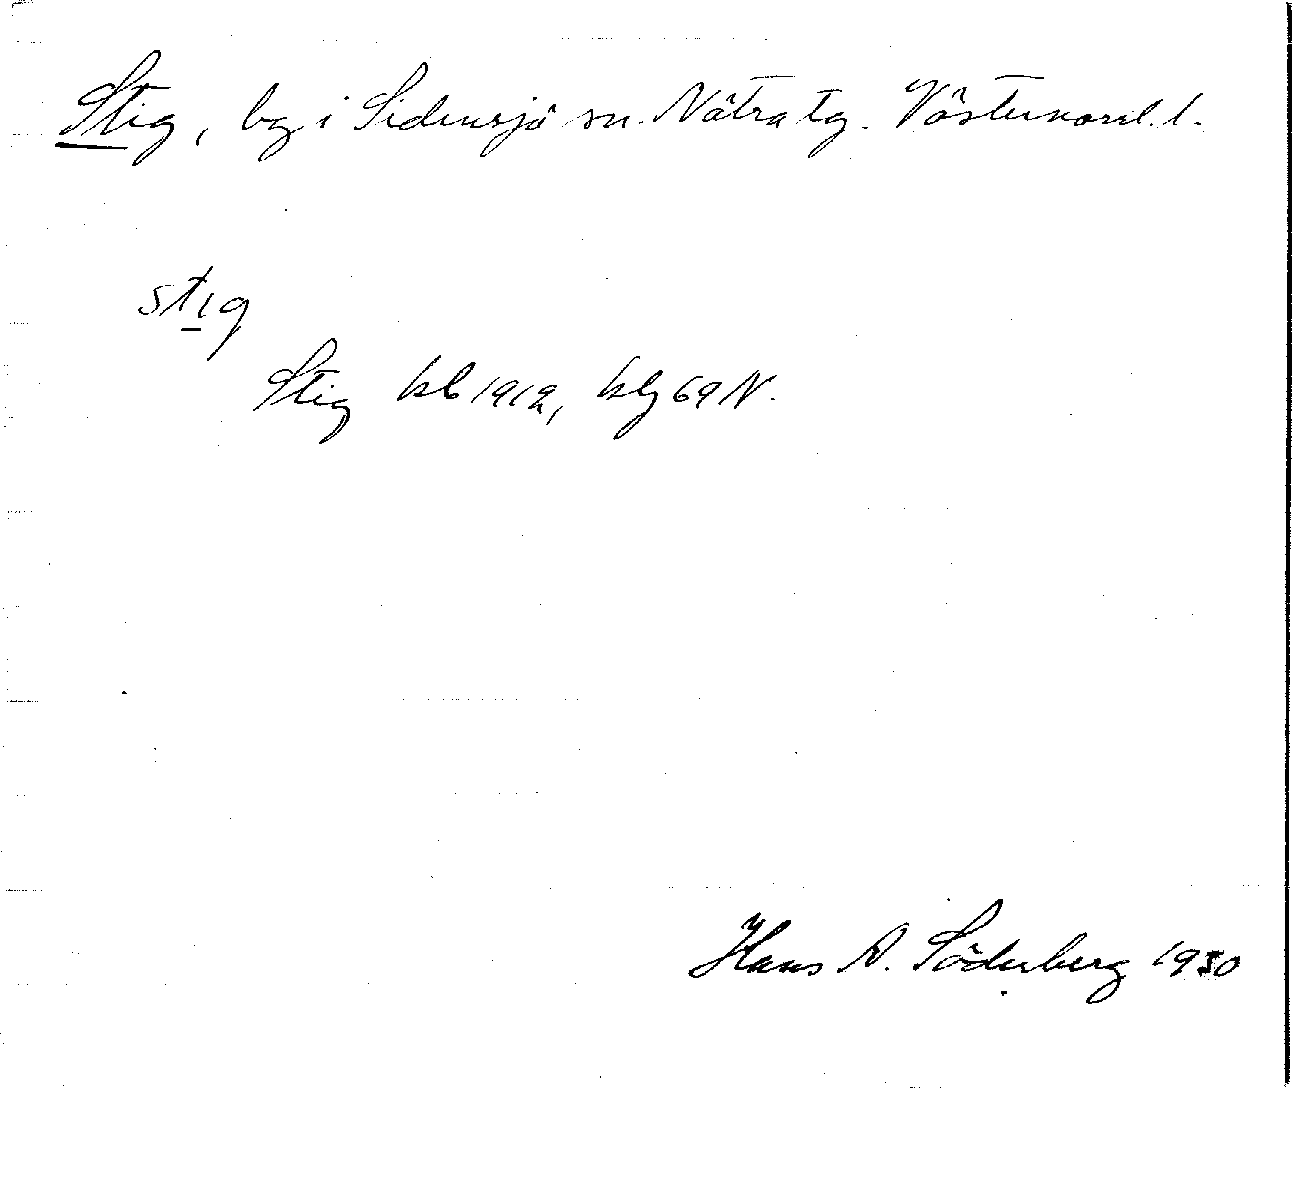 Stig, by i Sidensjö sn. Nätra tg. Västernorrl. l.
stig
Stig kb 1912, kbg 69 N.
Hans A. Söderberg 1930